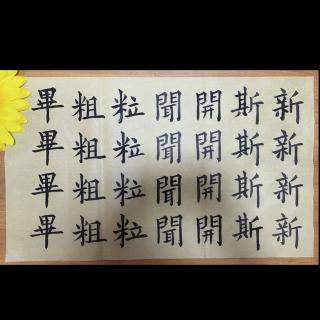 新新新新
斯斯斯斯
開開開開
聞聞聞聞
粒粒粒粒
粗粗粗粗
畢畢畢畢